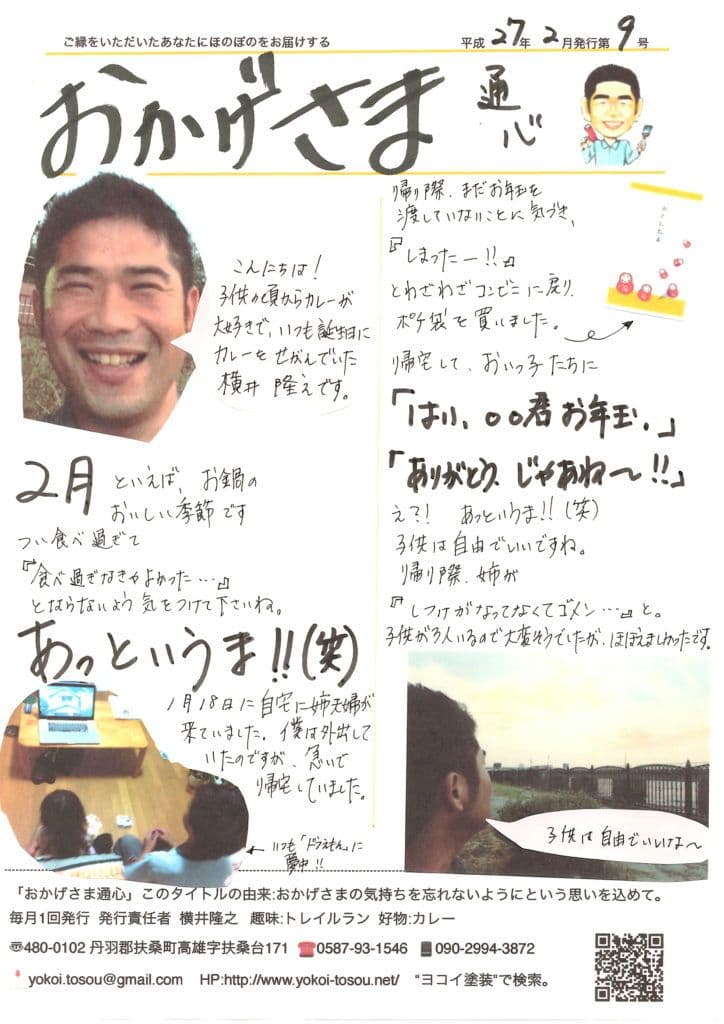 ご縁をいただいたあなたにほのぼのをお届けする
平成27年2月発行第9号
おかげさま
通心
こんにちは!
子供の頃からカレーが
大好きで、いつも誕生日に
カレーをせがんでいた
横井 隆之です。
2月 といえば、お鍋の
おいしい季節です
つい食べ過ぎて
『食べ過ぎなきゃよかった…』
とならないよう気をつけて下さいね。
あっというま!!(笑)
1月18日に自宅に姉夫婦が
来ていました。僕は外出して
いたのですが、急いで
帰宅していました。
←いつも「ドラえもん」に
夢中!!
帰り際、まだお年玉を
渡していないことに気づき、
『しまったー!!』
とわざわざコンビニに戻り、
ポチ袋を買いました。
帰宅して、おいっ子たちに
「はい、○○君お年玉。」
「ありがとう、じゃあね〜!!」
え?! あっというま!!(笑)
子供は自由でいいですね。
帰り際、姉が
『しつけがなってなくてゴメン…』と。
子供が3人いるので大変そうでしたが、ほほえましかったです。
子供は自由でいいけな〜
「おかげさま通心」このタイトルの由来:おかげさまの気持ちを忘れないようにという思いを込めて。
毎月1回発行 発行責任者 横井隆之 趣味:トレイルラン 好物:カレー
480-0102 丹羽郡扶桑町高雄字扶桑台171 0587-93-1546 090-2994-3872
yokoi.tosou@gmail.com HP:http://www.yokoi-tosou.net/ “ヨコイ塗装”で検索。